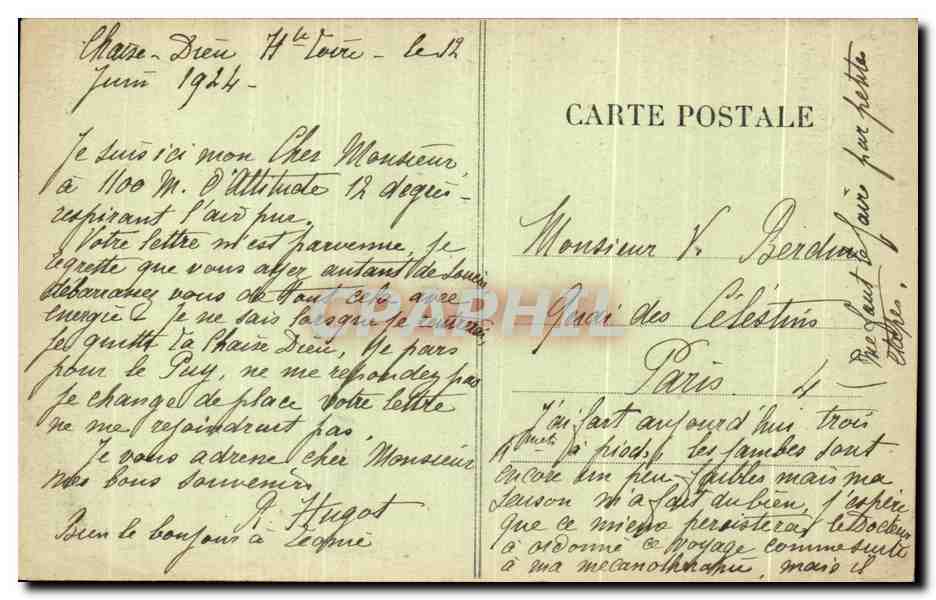 Chaise-Dieu Hte Loire - le 12
Juin 1924 -
Je suis ici mon Cher Monsieur
à 1100 M. d'Altitude 12 degrés -
respirant l'air pur.
Votre lettre m'est parvenue, je
regrette que vous ayez autant de soucis
débarrassez vous de tout cela avec
energie - Je ne sais lorsque je rentrerai,
je quitte la Chaise Dieu, je pars
pour le Puy, ne me repondez pas
je change de place votre lettre
ne me rejoindrait pas.
Je vous adresse cher Monsieur
mes bons souvenirs
R Hugot
Bien le bonjour à
CARTE POSTALE
Monsieur V. Berdin
Quai des Célestins
Paris. 4
J'ai fait aujourd'hui trois
à pieds, les jambes sont
encore un peu faibles mais ma
saison m'a fait du bien, j'espère
que ce mieux persistera, le Docteur
à ordonné ce voyage comme suite
à ma mecanotherapie, mais il
me faut le faire par petites
etapes.
CARAPHIL